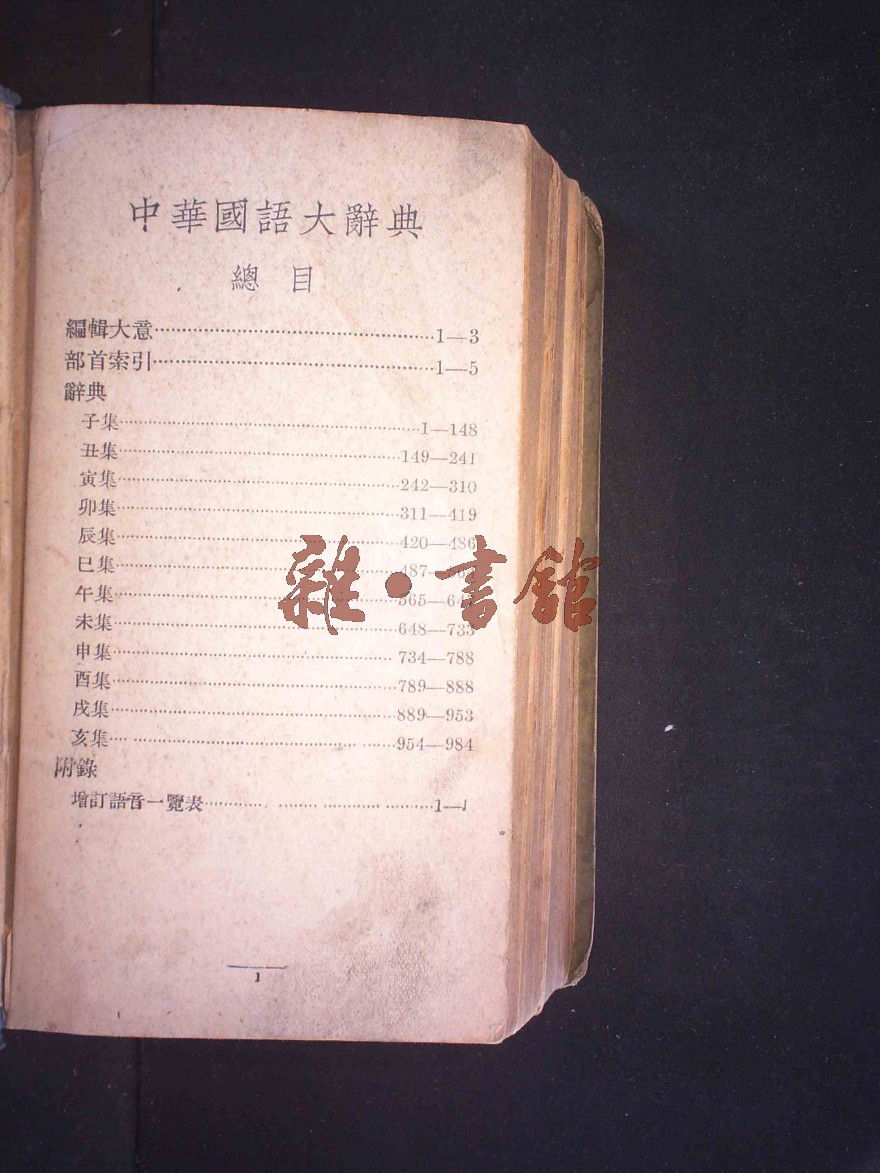 中華國語大辭典
總目
編輯大意……1—3
部首索引……1—5
辭典
子集……1—148
丑集……149—241
寅集……242—310
卯集……311—419
辰集……420—486
巳集……487—
午集……565—
未集……648—733
申集……734—788
酉集……789—888
戌集……889—953
亥集……954—984
附錄
增訂語音一覽表……1—
1
雜·書館